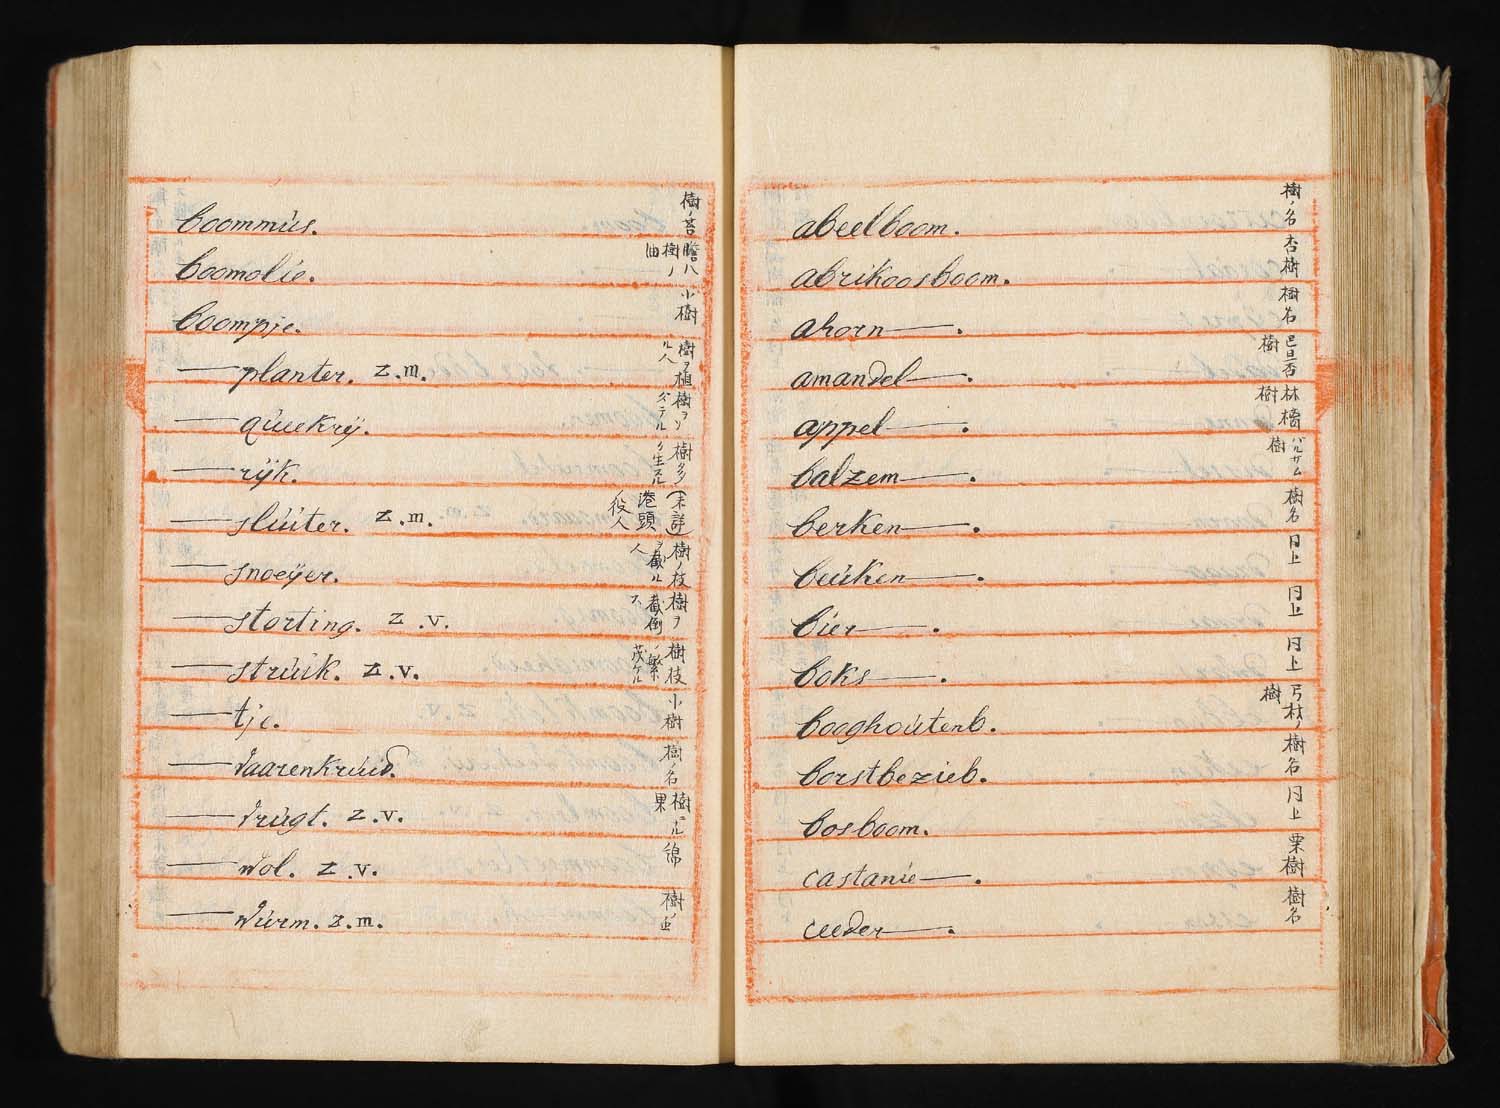 boommús. 樹ノ苔
boomolie. 膽八樹ノ油
boompje. 小樹
—planter. z.m. 樹ヲ植ル人
—qúeekrÿ. 樹ヲソダテル
—rÿk. 樹多ク生スル
—slúiter. z.m. (未詳) 港頭役人
—snoeÿer. 樹ノ枝ヲ截ル人
—storting. z.v. 樹ヲ截倒ス
—strúik. z.v. 樹枝ノ繁茂ケル
—tje. 小樹
—vaarenkrúid. 樹ノ名
—vrúgt. z.v. 樹ニナル果
—wol. z.v. 綿
—wúrm. z.m. 樹ノ虫
abeelboom. 樹ノ名
abrikoosboom. 杏樹
ahorn—. 樹名
amandel—. 巴旦杏樹
appel—. 林檎樹
balzem—. バルサム樹
berken—. 樹名
beúken—. 同上
bier—. 同上
boks—. 同上
booghoútenb. 弓材ノ樹
borstbezieb. 樹名
bosboom. 同上
castanie—. 栗樹
ceeder—. 樹名